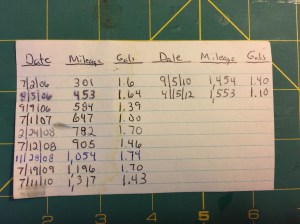 Date Mileage Gals Date Mileage Gals
7/2/06 301 1.6 9/5/10 1,454 1.40
8/5/06 453 1.64 4/5/12 1,553 1.10
9/9/06 584 1.39
7/1/07 647 1.00
2/24/08 782 1.70
7/12/08 905 1.46
11/28/08 1,054 1.74
7/19/09 1,196 1.70
7/11/10 1,317 1.43
2 3 4 5 6